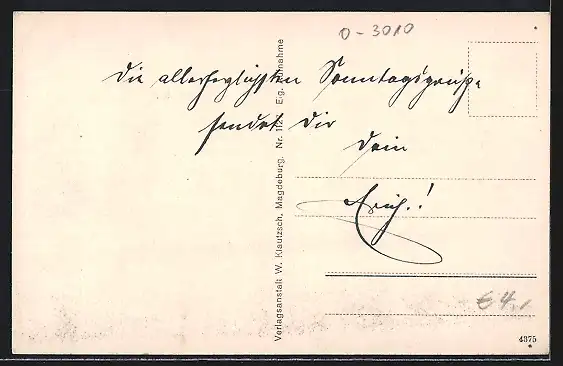 0-3010
Die allerherzlichsten Sonntagsgrüße
sendet Dir
Dein
Erich.!
Verlagsanstalt W. Klautzsch, Magdeburg. Nr. 112. Eig. Aufnahme
€4,
4375